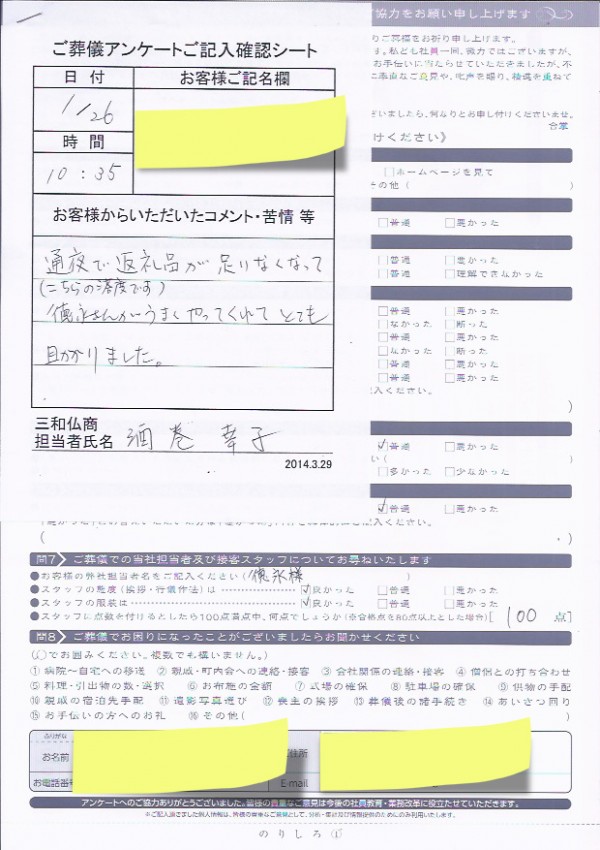 協力をお願い申し上げます
ご葬儀アンケートご記入確認シート
日付 お客様ご記名欄
1/26
時間
10:35
お客様からいただいたコメント・苦情 等
通夜で返礼品が足りなくなって
(こちらの落度です)
徳永さんがうまくやってくれて とても
助かりました。
三和仏商
担当者氏名 酒巻 幸子
2014.3.29
合掌
けください》
□ホームページを見て
その他(
□普通 □悪かった
□普通 □悪かった
□普通 □理解できなかった
□普通 □悪かった
□なかった □断った
□普通 □悪かった
□なかった □断った
□普通 □悪かった
入ください。
)
□普通 □悪かった
□多かった □少なかった
□普通 □悪かった
問7 ご葬儀での当社担当者及び接客スタッフについてお尋ねいたします
●お客様の弊社担当者名をご記入ください( 徳永様 )
●スタッフの態度(挨拶・行儀作法)は □良かった □普通 □悪かった
●スタッフの服装は □良かった □普通 □悪かった
●スタッフに点数を付けるとしたら100点満点中、何点でしょうか(※合格点を80点以上とした場合)[ 100 点]
問8 ご葬儀でお困りになったことがございましたらお聞かせください
(○でお囲みください。複数でも構いません。)
①病院〜自宅への移送 ②親戚・町内会への連絡・接客 ③会社関係の連絡・接客 ④僧侶との打ち合わせ
⑤料理・引出物の数・選択 ⑥お布施の金額 ⑦式場の確保 ⑧駐車場の確保 ⑨供物の手配
⑩親戚の宿泊先手配 ⑪遺影写真選び ⑫喪主の挨拶 ⑬葬儀後の諸手続き ⑭あいさつ回り
⑮お手伝いの方へのお礼 ⑯その他( )
ふりがな
お名前
お電話番号 E-mail
アンケートへのご協力ありがとうございました。皆様の貴重なご意見は今後の社員教育・業務改革に役立たせていただきます。
のりしろ①